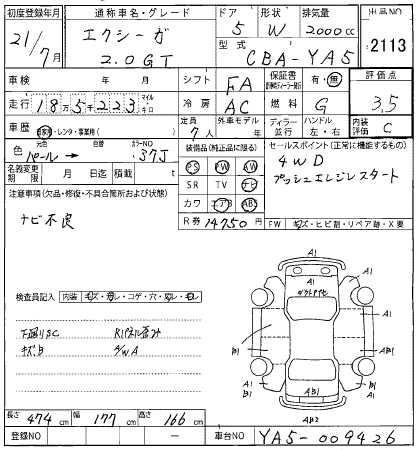 初度登録年月 通称車名・グレード ドア 形状 排気量 出品NO
21/7月 エクシーガ 5 W 2000cc 2113
2.0GT 型式 CBA-YA5
車検 年 月 シフト FA 保証書 有・無 評価点
走行 18万5千223 マイル キロ 冷房 AC 燃料 G 3.5
車歴 自家用・レンタ・事業用( ) 定員 7人 外車モデル 年 ディーラー 並行 ハンドル 左・右 内装評価 C
色 元色 パール→ 色替 カラーNO 37J
装備品(純正品に限る) セールスポイント(正常に機能するもの)
PS PW AW 4WD
名義変更期限 月 日迄 積載 t SR TV ナビ プッシュエンジンスタート
注意事項(欠品・修復・不具合箇所および状態) カワ エアB ABS
ナビ不良 R券 14750円 FW キズ・ヒビ割・リペア跡・X要
A1
A1 A1
ダクトハゲ
検査員記入 内装 キズ・汚レ・コゲ・穴・切レ・モレ
A1
下廻りSC
キズB AWA
B1 B1
A1 AB1 B1
AB2
長さ 474cm 幅 177cm 高さ 166cm
登録NO — 車台NO YA5-009426